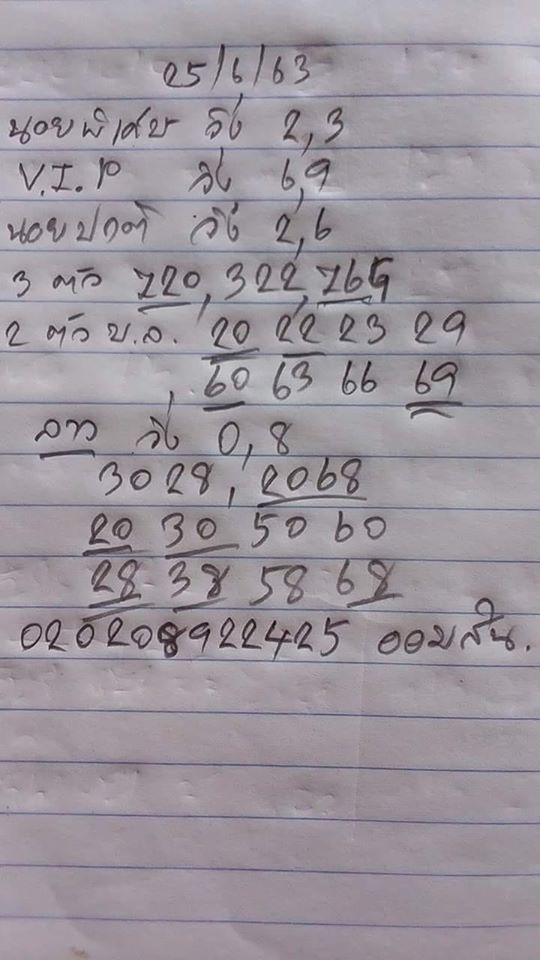 25/6/63
นอยพิเศษ วิ่ง 2,3
V.I.P วิ่ง 6,9
นอยปกติ วิ่ง 2,6
3 ตัว 720,322,765
2 ตัว บ.ล. 20 22 23 29
, 60 63 66 69
ลาว วิ่ง 0,8
3028, 2068
20 30 50 60
28 38 58 68
020208922425 ออมสิน.